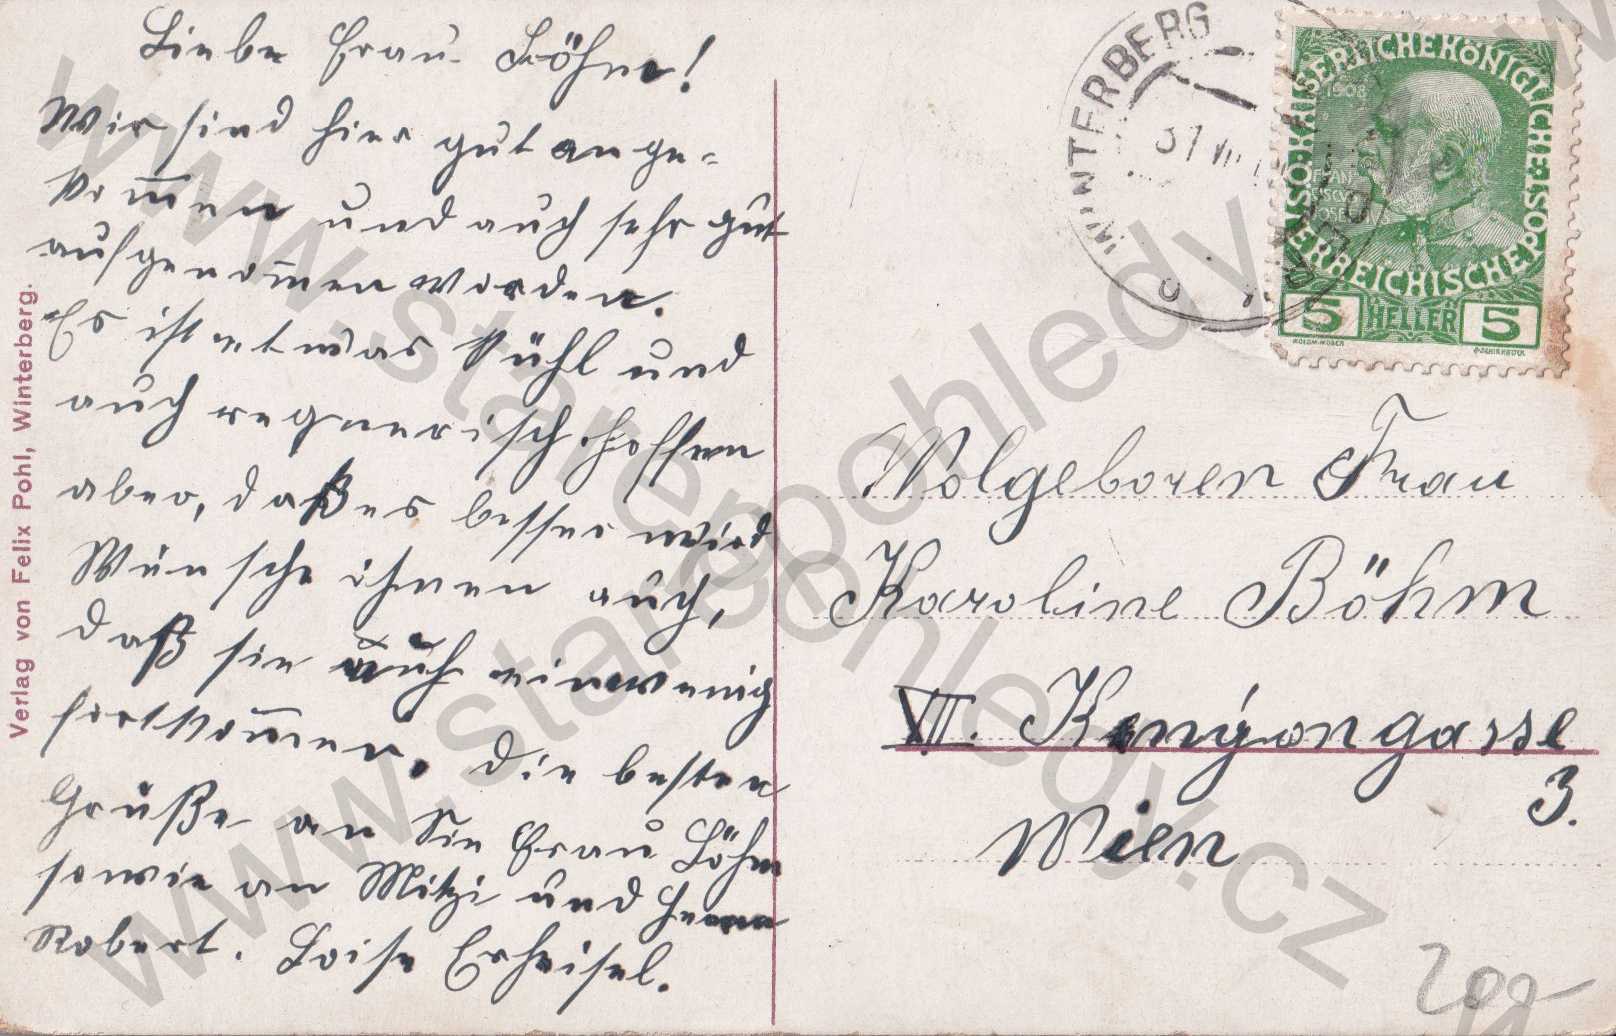 Liebe Frau Böhm!
Wir sind hier gut ange-
kom̅en und auch sehr gut
aufgenom̅en worden.
Es ist etwas kühl und
auch regnerisch hoffen
aber, daß es besser wird
Wünsche ihnen auch,
daß sie auch einwenig
fortkom̅en. Die besten
Grüße an Sie Frau Böhm
sowie an Mitzi und Herrn
Robert. Loise
Verlag von Felix Pohl, Winterberg.
WINTERBERG
KAISERLICHE KÖNIGLICHE ÖSTERREICHISCHE POST
1908
5 HELLER 5
Wolgeboren Frau
Karoline Böhm
VII. Kenyongasse
3.
Wien
200
www.starepohledy.cz
www.starepohledy.cz